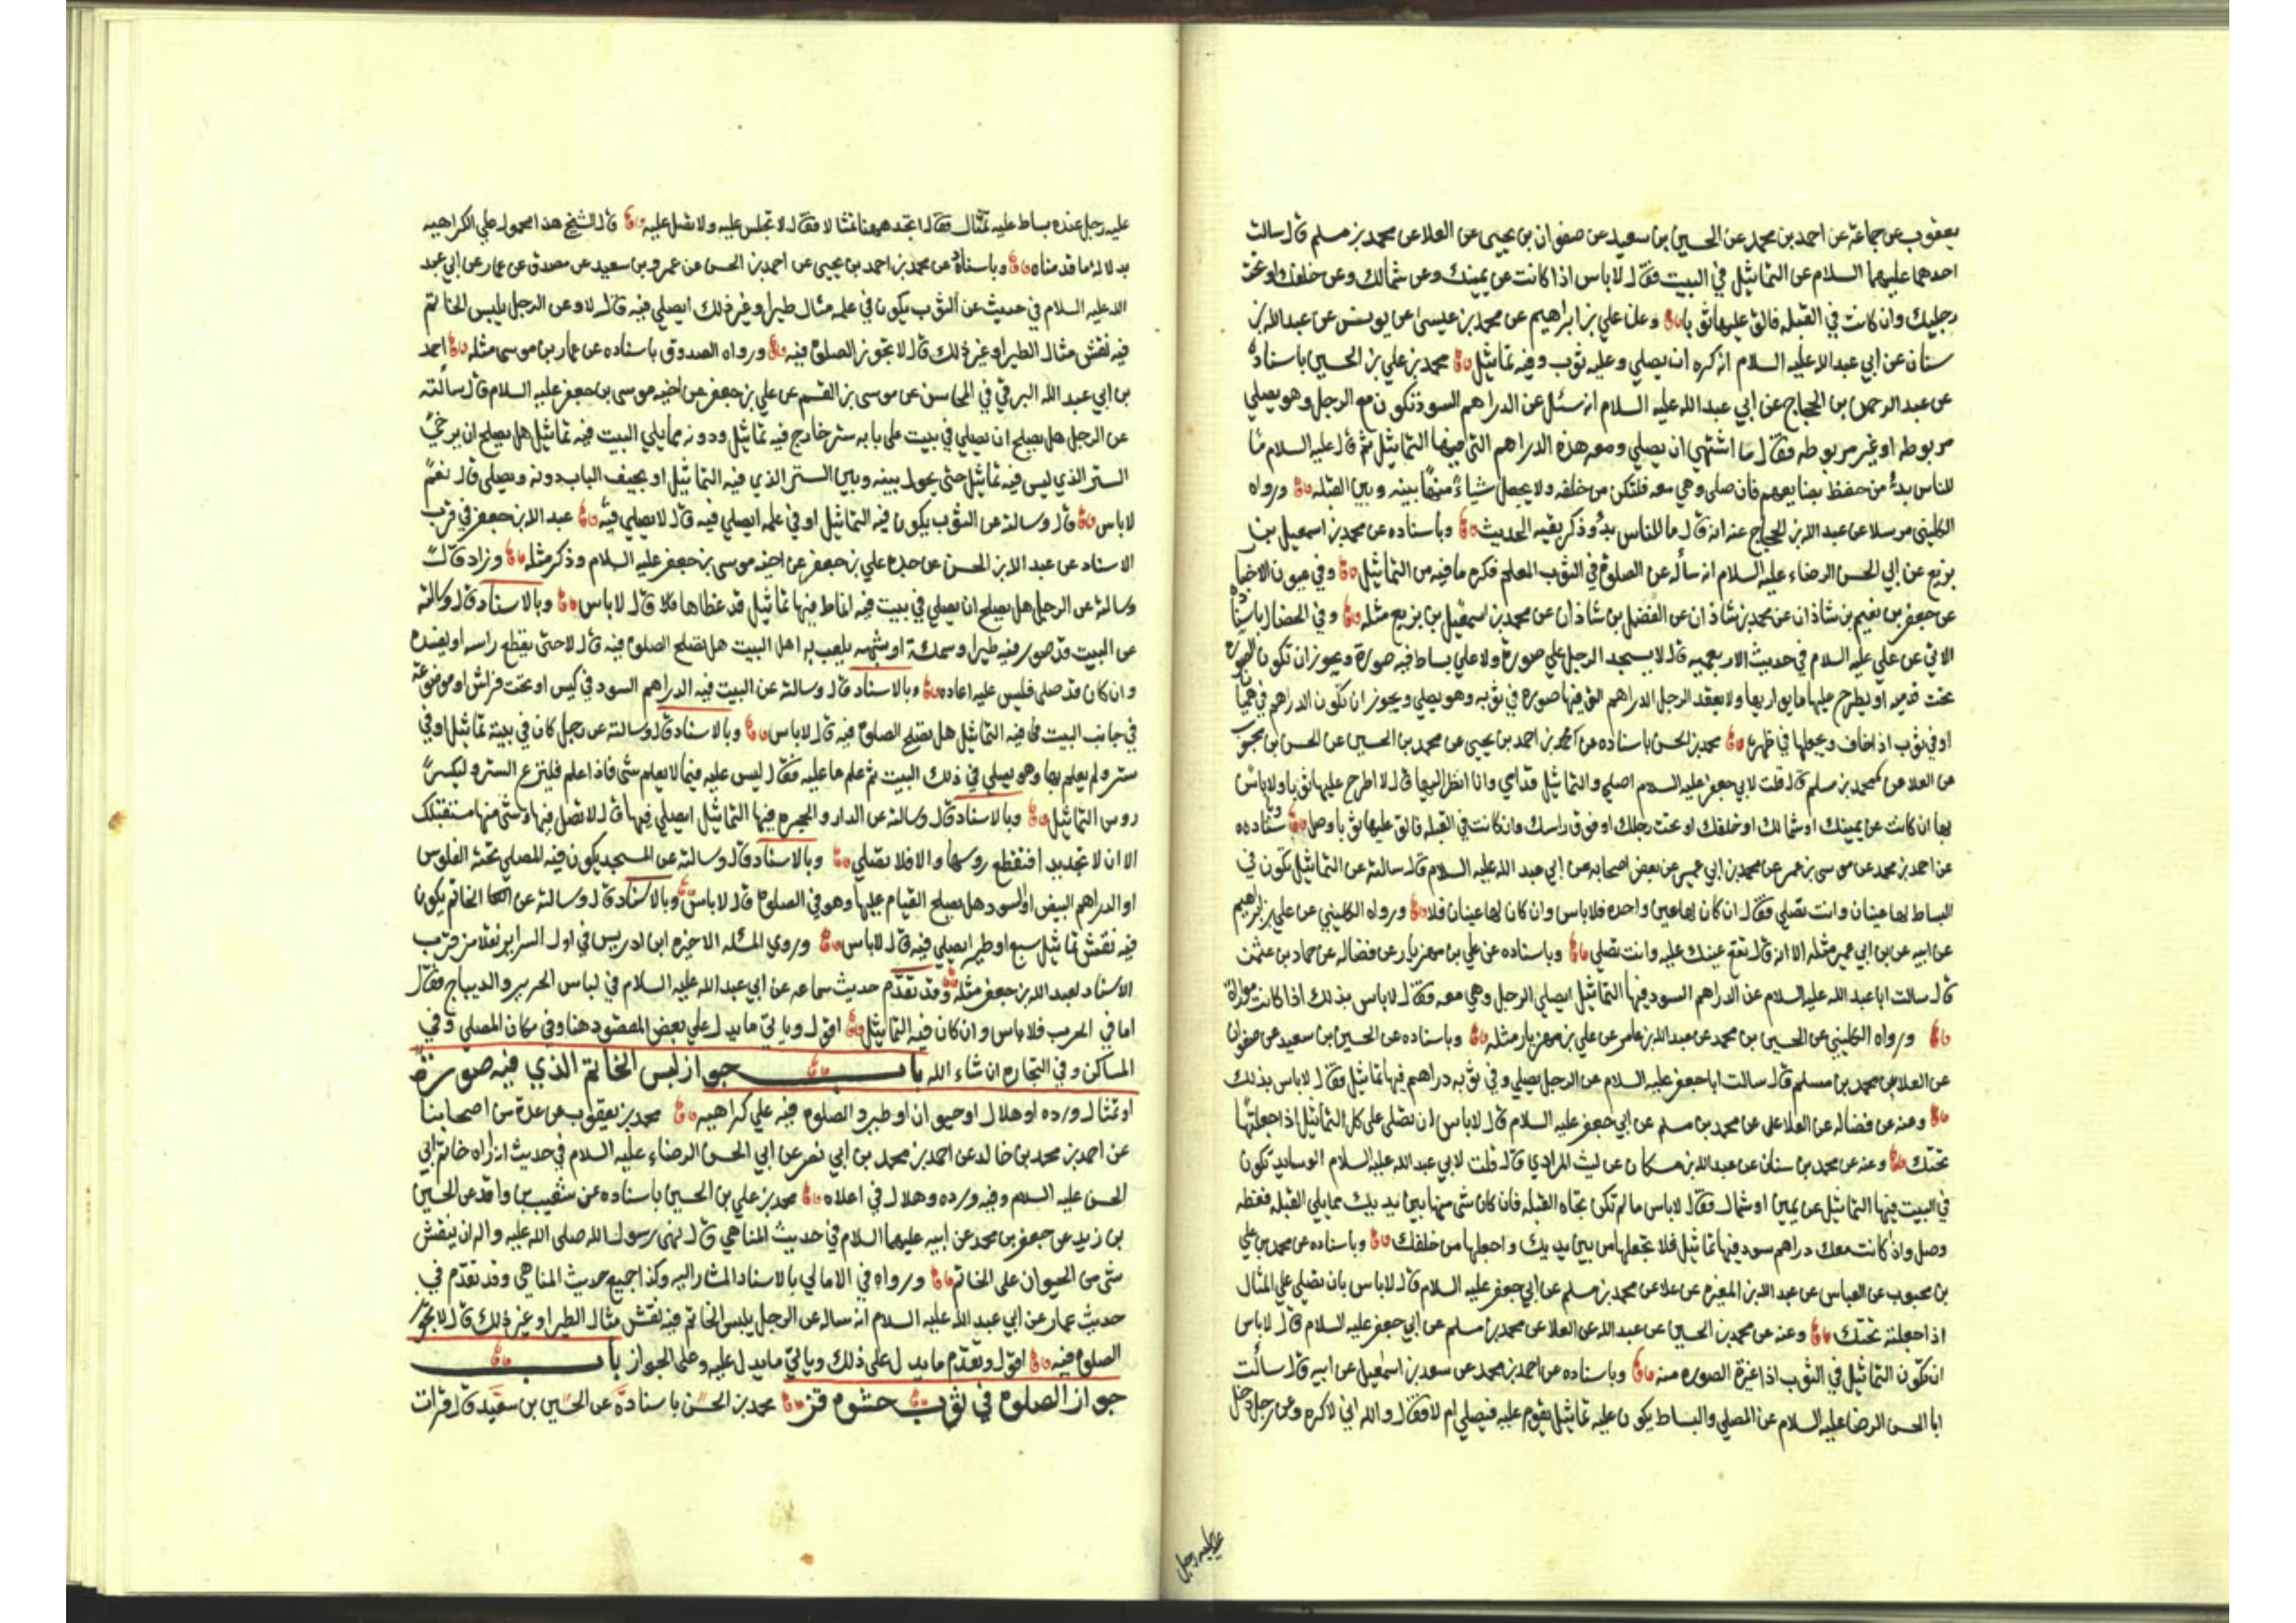 يعقوب عن جماعة عن احمد بن محمد عن الحسين بن سعيد عن صفوان بن يحيى عن العلا عن محمد بن مسلم قال سالت
احدهما عليهما السلام عن التماثيل في البيت فقال لا باس اذا كانت عن يمينك وعن شمالك وعن خلفك او تحت
رجليك وان كانت في القبله فالق عليها ثوبا وعن علي بن ابراهيم عن محمد بن عيسى عن يونس عن عبدالله بن
سنان عن ابي عبدالله عليه السلام انه كره ان يصلي وعليه ثوب وفيه تماثيل محمد بن علي بن الحسين باسناده
عن عبد الرحمن بن الحجاج عن ابي عبدالله عليه السلام انه سئل عن الدراهم السود تكون مع الرجل وهو يصلي
مربوطه او غير مربوطه فقال ما اشتهي ان يصلي ومعه هذه الدراهم التي فيها التماثيل ثم قال عليه السلام ما
للناس بد من حفظ بضايعهم فان صلى وهي معه فلتكن من خلفه ولا يجعل شياء منها بينه وبين القبله ورواه
الكليني مرسلا عن عبدالله بن الحجاج عنه انه قال ما للناس بد وذكر بقيه الحديث وباسناده عن محمد بن اسمعيل بن
بزيع عن ابي الحسن الرضاء عليه السلام انه سأله عن الصلوة في الثوب المعلم فكره ما فيه من التماثيل وفي عيون الاخبار
عن جعفر بن نعيم بن شاذان عن محمد بن شاذان عن الفضل بن شاذان عن محمد بن اسمعيل بن بزيع مثله وفي الخصال باسناده
الاتي عن علي عليه السلام في حديث الاربعميه قال لا يسجد الرجل علي صورة ولا علي بساط فيه صورة ويجوز ان تكون الصورة
تحت قدميه او يطرح عليها ما يواريها ولا يعقد الرجل الدراهم التي فيها صوره في ثوبه وهو يصلي ويجوز ان تكون الدراهم في هميان
او في ثوب اذا خاف ويجعلها في ظهره محمد بن الحسن باسناده عن احمد بن يحيى عن محمد بن الحسين عن الحسن بن محبوب
عن العلا عن محمد بن مسلم قال قلت لابي جعفر عليه السلام اصلي والتماثيل قدامي وانا انظر اليها قال لا اطرح عليها ثوبا ولا باس
بها ان كانت عن يمينك او شمالك او خلفك او تحت رجلك او فوق راسك وان كانت في القبله فالق عليها ثوبا وصل
عن احمد بن محمد عن موسى بن عمر عن محمد بن ابي عمير عن بعض اصحابه عن ابي عبد الله عليه السلام قال سالته عن التماثيل تكون في
البساط لها عينان وانت تصلي فقال ان كان لها عين واحده فلا باس وان كان لها عينان فلا ورواه الكليني عن علي بن ابراهيم
عن ابيه عن بن ابي عمير مثله الا انه قال تقع عينك عليه وانت تصلي وباسناده عن علي بن مهزيار عن فضاله عن حماد بن عثمن
قال سالت ابا عبد الله عليه السلام عن الدراهم السود فيها التماثيل ايصلي الرجل وهي معه فقال لا باس بذلك اذا كانت مواراة
ورواه الكليني عن الحسين بن محمد عن عبدالله بن عامر عن علي بن مهزيار مثله وباسناده عن الحسين بن سعيد عن صفوان
عن العلا عن محمد بن مسلم قال سالت ابا جعفر عليه السلام عن الرجل يصلي وفي ثوبه دراهم فيها تماثيل فقال لا باس بذلك
وعنه عن فضاله عن العلا عن محمد بن مسلم عن ابي جعفر عليه السلام قال لا باس ان تصلى على كل التماثيل اذا جعلتها
تحتك وعنه عن محمد بن سنان عن عبدالله بن مسكان عن ليث المرادي قال قلت لابي عبدالله عليه السلام الوسايد تكون
في البيت فيها التماثيل عن يمين او شمال فقال لا باس ما لم تكن تجاه القبله فان كان شى منها بين يديك مما يلي القبله فغطه
وصل واذا كانت معك دراهم سود فيها تماثيل فلا تجعلها من بين يديك واجعلها من خلفك وباسناده عن محمد بن علي
بن محبوب عن العباس عن عبد الله بن المغيره عن علا عن محمد بن مسلم عن ابي جعفر عليه السلام قال لا باس بان تصلي علي المثال
اذا جعلته تحتك وعنه عن محمد بن الحسين عن عبدالله عن العلا عن محمد بن مسلم عن ابي جعفر عليه السلام قال لا باس
ان تكون التماثيل في الثوب اذا غيرة الصوره منه وباسناده عن احمد بن محمد عن سعد بن اسمعيل عن ابيه قال سالت
ابا الحسن الرضا عليه السلام عن المصلي والبساط يكون عليه تماثيل يقوم عليه فيصلي ام لا فقال والله اني لاكره وعن رجل دخل
علي رجل
عليه رجل عنده بساط عليه تمثال فقال اتجد ههنا مثالا فقال لا تجلس عليه ولا تصل عليه قال الشيخ هذا محمول علي الكراهيه
بدلاله ما قدمناه وباسناده عن محمد بن احمد بن يحيى عن احمد بن الحسن عن عمرو بن سعيد عن مصدق عن عمار عن ابي عبد
الله عليه السلام في حديث عن الثوب يكون في علمه مثال طير او غير ذلك ايصلي فيه قال لا وعن الرجل يلبس الخاتم
فيه نقش مثال الطير او غير ذلك قال لا تجوز الصلوة فيه ورواه الصدوق باسناده عن عمار بن موسى مثله احمد
بن ابي عبد الله البرقي في المحاسن عن موسى بن القسم عن علي بن جعفر عن اخيه موسى بن جعفر عليه السلام قال سالته
عن الرجل هل يصلح ان يصلي في بيت على بابه ستر خارج فيه تماثيل ودونه مما يلي البيت فيه تماثيل هل يصلح ان يرخي
الستر الذي ليس فيه تماثيل حتى يحول بينه وبين الستر الذي فيه التماثيل او يجيف الباب دونه ويصلي قال نعم
لا باس قال وسالته عن الثوب يكون فيه التماثيل او في علمه ايصلي فيه قال لا يصلي فيه عبد الله بن جعفر في قرب
الاسناد عن عبد الله بن الحسن عن جده علي بن جعفر عن اخيه موسى بن جعفر عليه السلام وذكر مثله وزاد قال
وسالته عن الرجل هل يصلح ان يصلي في بيت فيه انماط فيها تماثيل قد غطاها قال لا باس وبالاسناد قال وسالته
عن البيت قد صور فيه طيرا وسمكة او شبهه يلعب به اهل البيت هل تصلح الصلوه فيه قال لا حتى يقطع راسه او يفسده
وان كان قد صلى فليس عليه اعاده وبالاسناد قال وسالته عن البيت فيه الدراهم السود في كيس او تحت فراش او موضوعة
في جانب البيت فيه التماثيل هل تصلح الصلوة فيه قال لا باس وبالاسناد قال وسالته عن رجل كان في بيته تماثيل او في
ستر ولم يعلم بها وهو يصلي في ذلك البيت ثم علم ما عليه فقال ليس عليه فيما لا يعلم شى فاذا علم فلينزع الستر وليكسر
روس التماثيل وبالاسناد قال وسالته عن الدار والحجره فيها التماثيل ايصلي فيها قال لا تصل فيها وشى منها مستقبلك
الا ان لا تجد بدا فتقطع روسها والا فلا تصلي وبالاسناد قال وسالته عن المسجد يكون فيه المصلي تحته الفلوس
او الدراهم البيض او السود هل يصلح القيام عليها وهو في الصلوة قال لا باس وبالاسناد قال وسالته عن الخاتم يكون
فيه نقش تماثيل سبع او طير ايصلي فيه قال لا باس وروي المسئله الاخيره ابن ادريس في اول السراير نقلا من قرب
الاسناد لعبد الله بن جعفر مثله وقد تقدم حديث سماعه عن ابي عبد الله عليه السلام في لباس الحرير والديباج فقال
اما في الحرب فلا باس وان كان فيه التماثيل اقول وياتي ما يدل علي بعض المقصود هنا وفي مكان المصلي وفي
المساكن وفي التجاره ان شاء الله باب جواز لبس الخاتم الذي فيه صورة
او تمثال ورده او هلال او حيوان او طير والصلوه فيه علي كراهيه محمد بن يعقوب عن عدة من اصحابنا
عن احمد بن محمد بن خالد عن احمد بن محمد بن ابي نصر عن ابي الحسن الرضاء عليه السلام في حديث انه اراه خاتم ابي
الحسن عليه السلام وفيه ورده وهلال في اعلاه محمد بن علي بن الحسين باسناده عن شعيب بن واقد عن الحسين
بن زيد عن جعفر بن محمد عن ابيه عليهما السلام في حديث المناهي قال نهى رسول الله صلى الله عليه واله ان ينقش
شى من الحيوان على الخاتم ورواه في الامالي بالاسناد المشار اليه وكذا جميع حديث المناهي وقد تقدم في
حديث عمار عن ابي عبد الله عليه السلام انه ساله عن الرجل يلبس الخاتم فيه نقش مثال الطير او غير ذلك قال لا تجوز
الصلوة فيه اقول وتقدم ما يدل على ذلك وياتي ما يدل عليه وعلى الجواز باب
جواز الصلوة في ثوب حشوه قز محمد بن الحسن باسناده عن الحسين بن سعيد قال قرات